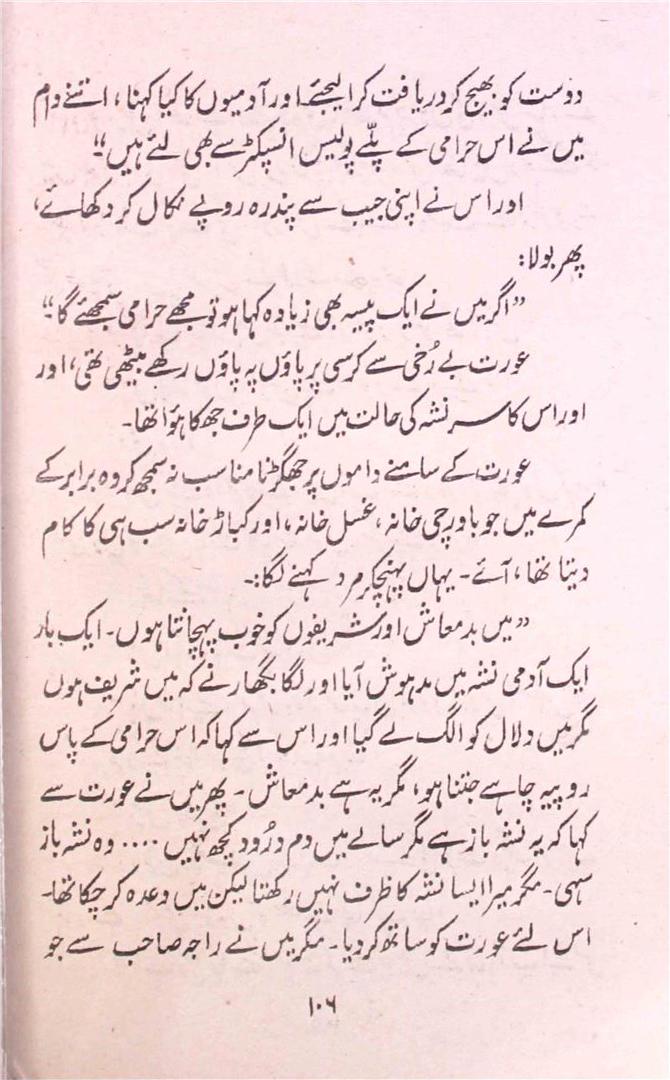 دوست کو بھیج کر دریافت کرالیجئے اور آدمیوں کا کیا کہنا، اتنے دام
میں نے اس حرامی کے پلّے پولیس انسپکٹر سے بھی لئے ہیں“
اور اس نے اپنی جیب سے پندرہ روپے نکال کر دکھائے،
پھر بولا:
”اگر میں نے ایک پیسہ بھی زیادہ کہا ہو تو مجھے حرامی سمجھئے گا“
عورت بے رُخی سے کرسی پر پاؤں پہ پاؤں رکھے بیٹھی تھی، اور
اور اس کا سر نشہ کی حالت میں ایک طرف جھکا ہوا تھا۔
عورت کے سامنے داموں پر جھگڑنا مناسب نہ سمجھ کر وہ برابر کے
کمرے میں جو باورچی خانہ، غسل خانہ، اور کباڑ خانہ سب ہی کا کام
دیتا تھا، آئے۔ یہاں پہنچکر مرد کہنے لگا:۔
”میں بدمعاش اور شریفوں کو خوب پہچانتا ہوں۔ ایک بار
ایک آدمی نشہ میں مدہوش آیا اور لگا بگھارنے کہ میں شریف ہوں
مگر میں دلال کو الگ لے گیا اور اس سے کہا کہ اس حرامی کے پاس
روپیہ چاہے جتنا ہو، مگر یہ ہے بدمعاش۔ پھر میں نے عورت سے
کہا کہ یہ نشہ باز ہے مگر سالے میں دم درُود کچھ نہیں .... وہ نشہ باز
سہی۔ مگر میرا ایسا نشہ کا ظرف نہیں رکھتا لیکن میں وعدہ کر چکا تھا۔
اس لئے عورت کو ساتھ کر دیا۔ مگر میں نے راجہ صاحب سے جو
۱۰۶